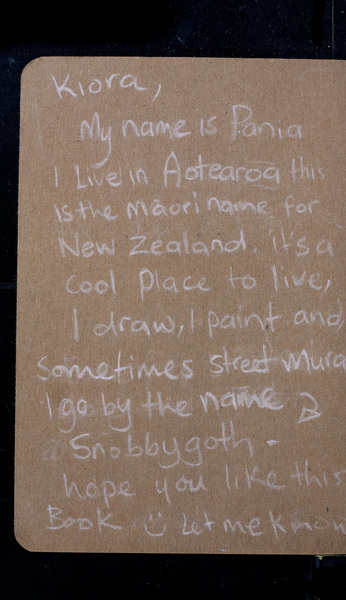 Kiora,
My name is Pania
I Live in Aotearoa this
is the māori name for
New Zealand. it's a
cool Place to live,
I draw, I paint and,
sometimes street Mura
I go by the name
Snobbygoth.
hope you like this
Book Let me know